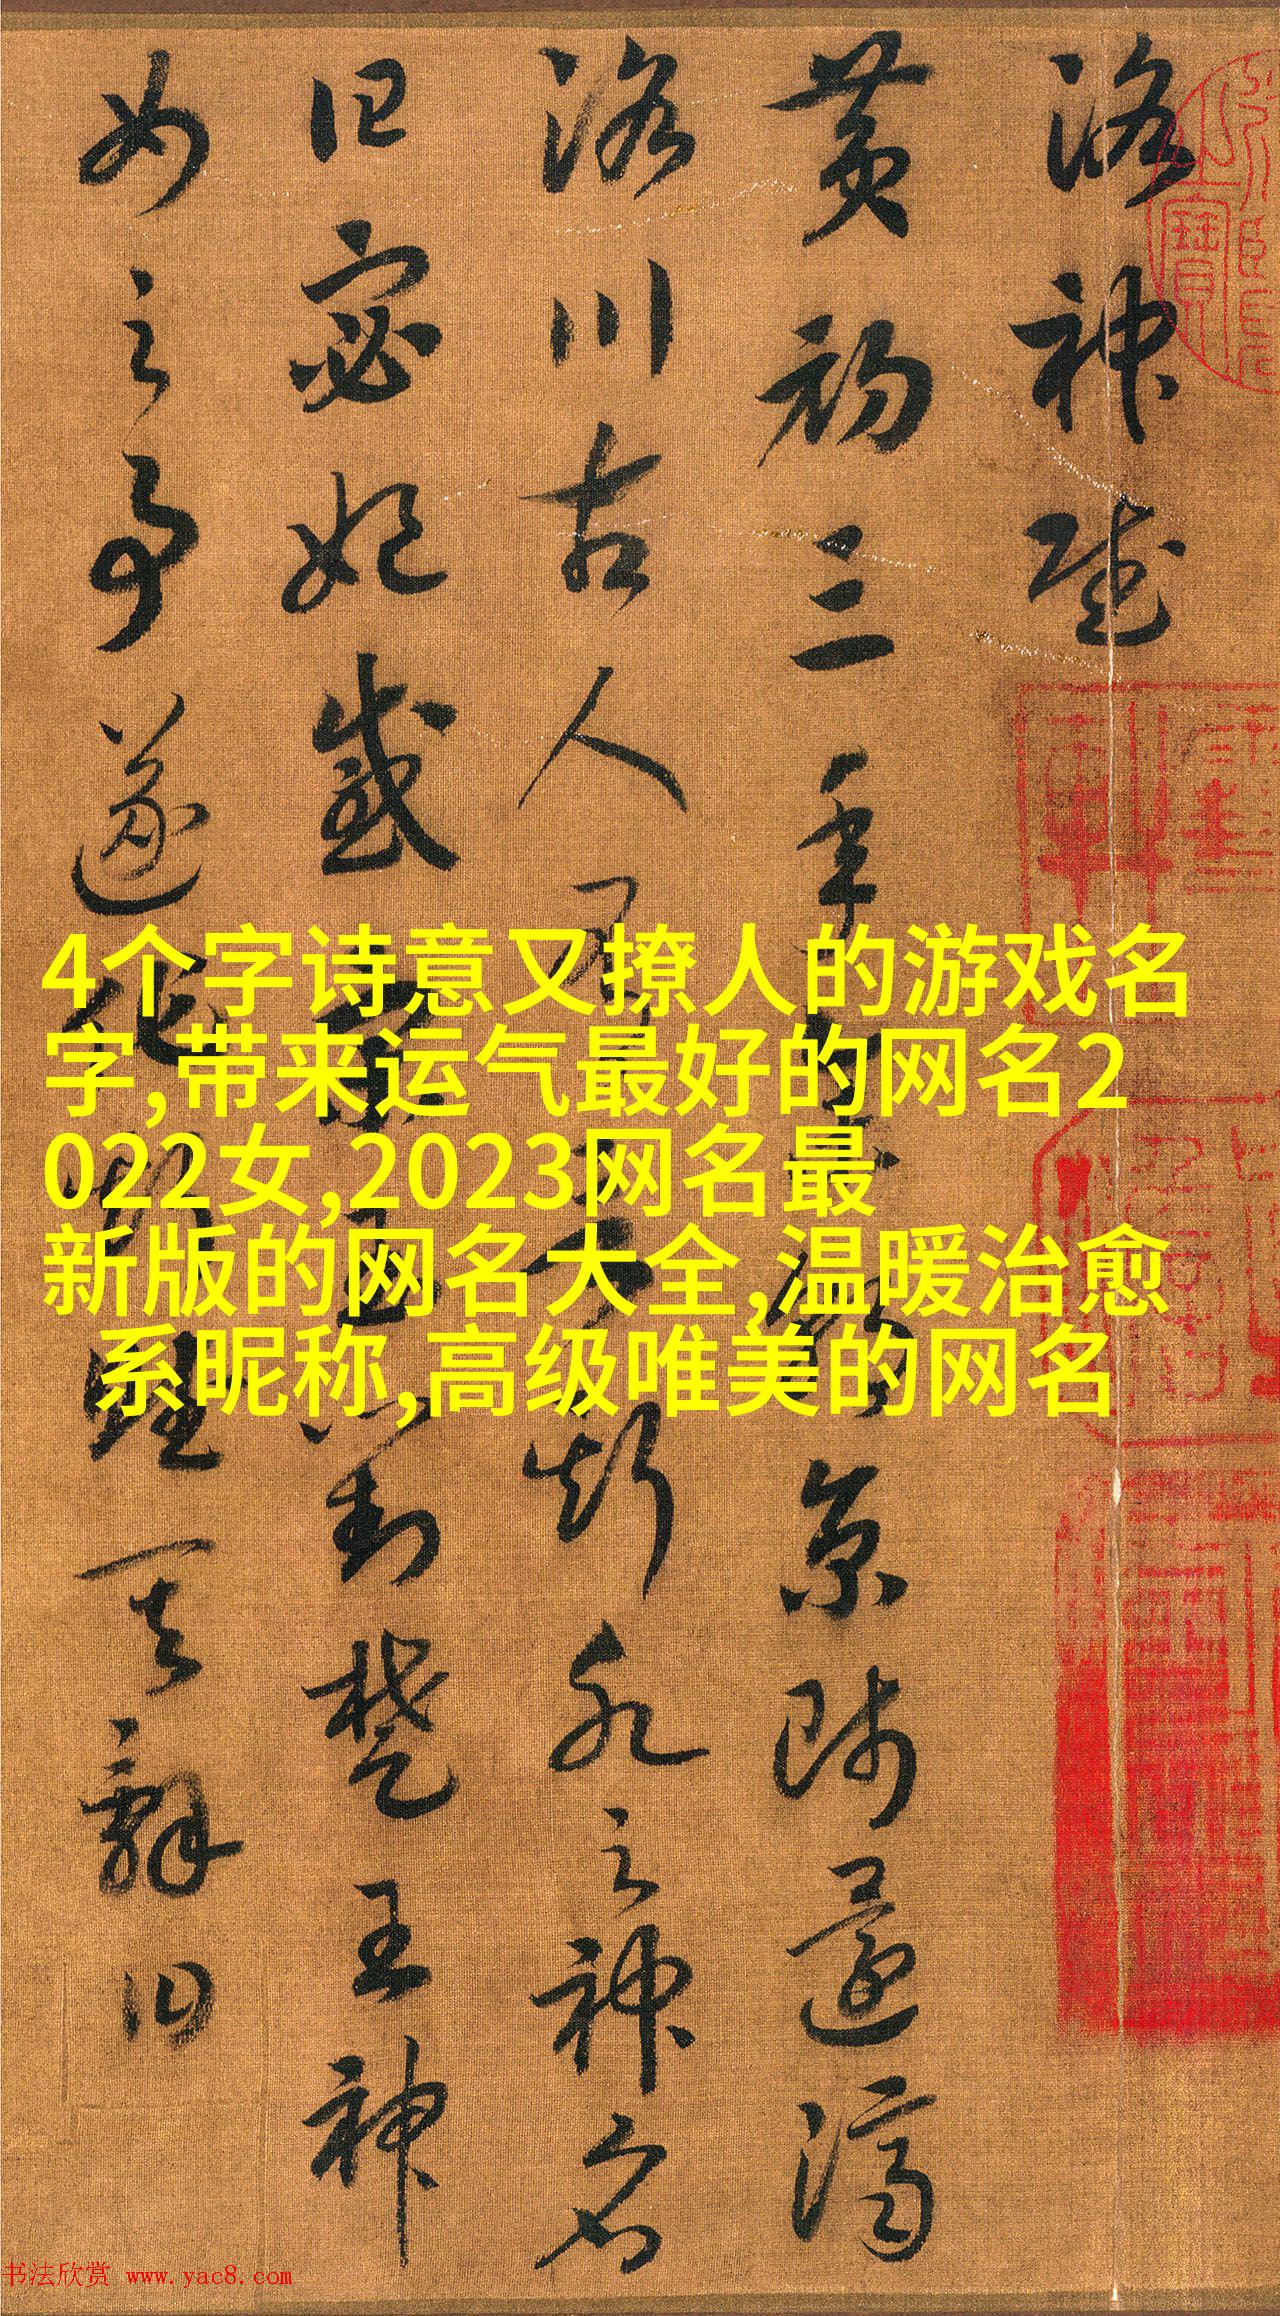 洛神賦
黄初三年京師還濟
洛川古人有斯水之神名
曰宓妃感宋玉對楚王神
女之事遂作斯賦其辭曰
4个字诗意又撩人的游戏名
字,带来运气最好的网名2
022女,2023网名最
新版的网名大全,温暖治愈
系昵称,高级唯美的网名
书法欣赏 www.yac8.com